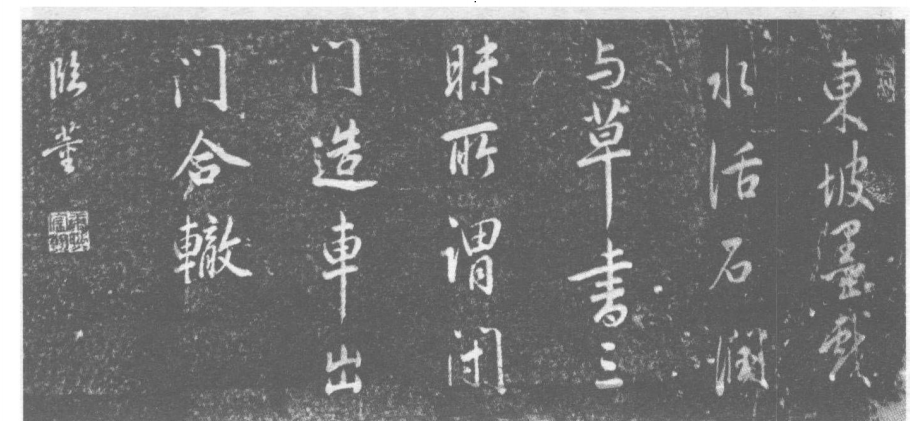 東坡墨戲
水活石潤
与草書三
昧所谓闭
门造車出
门合轍
臨董